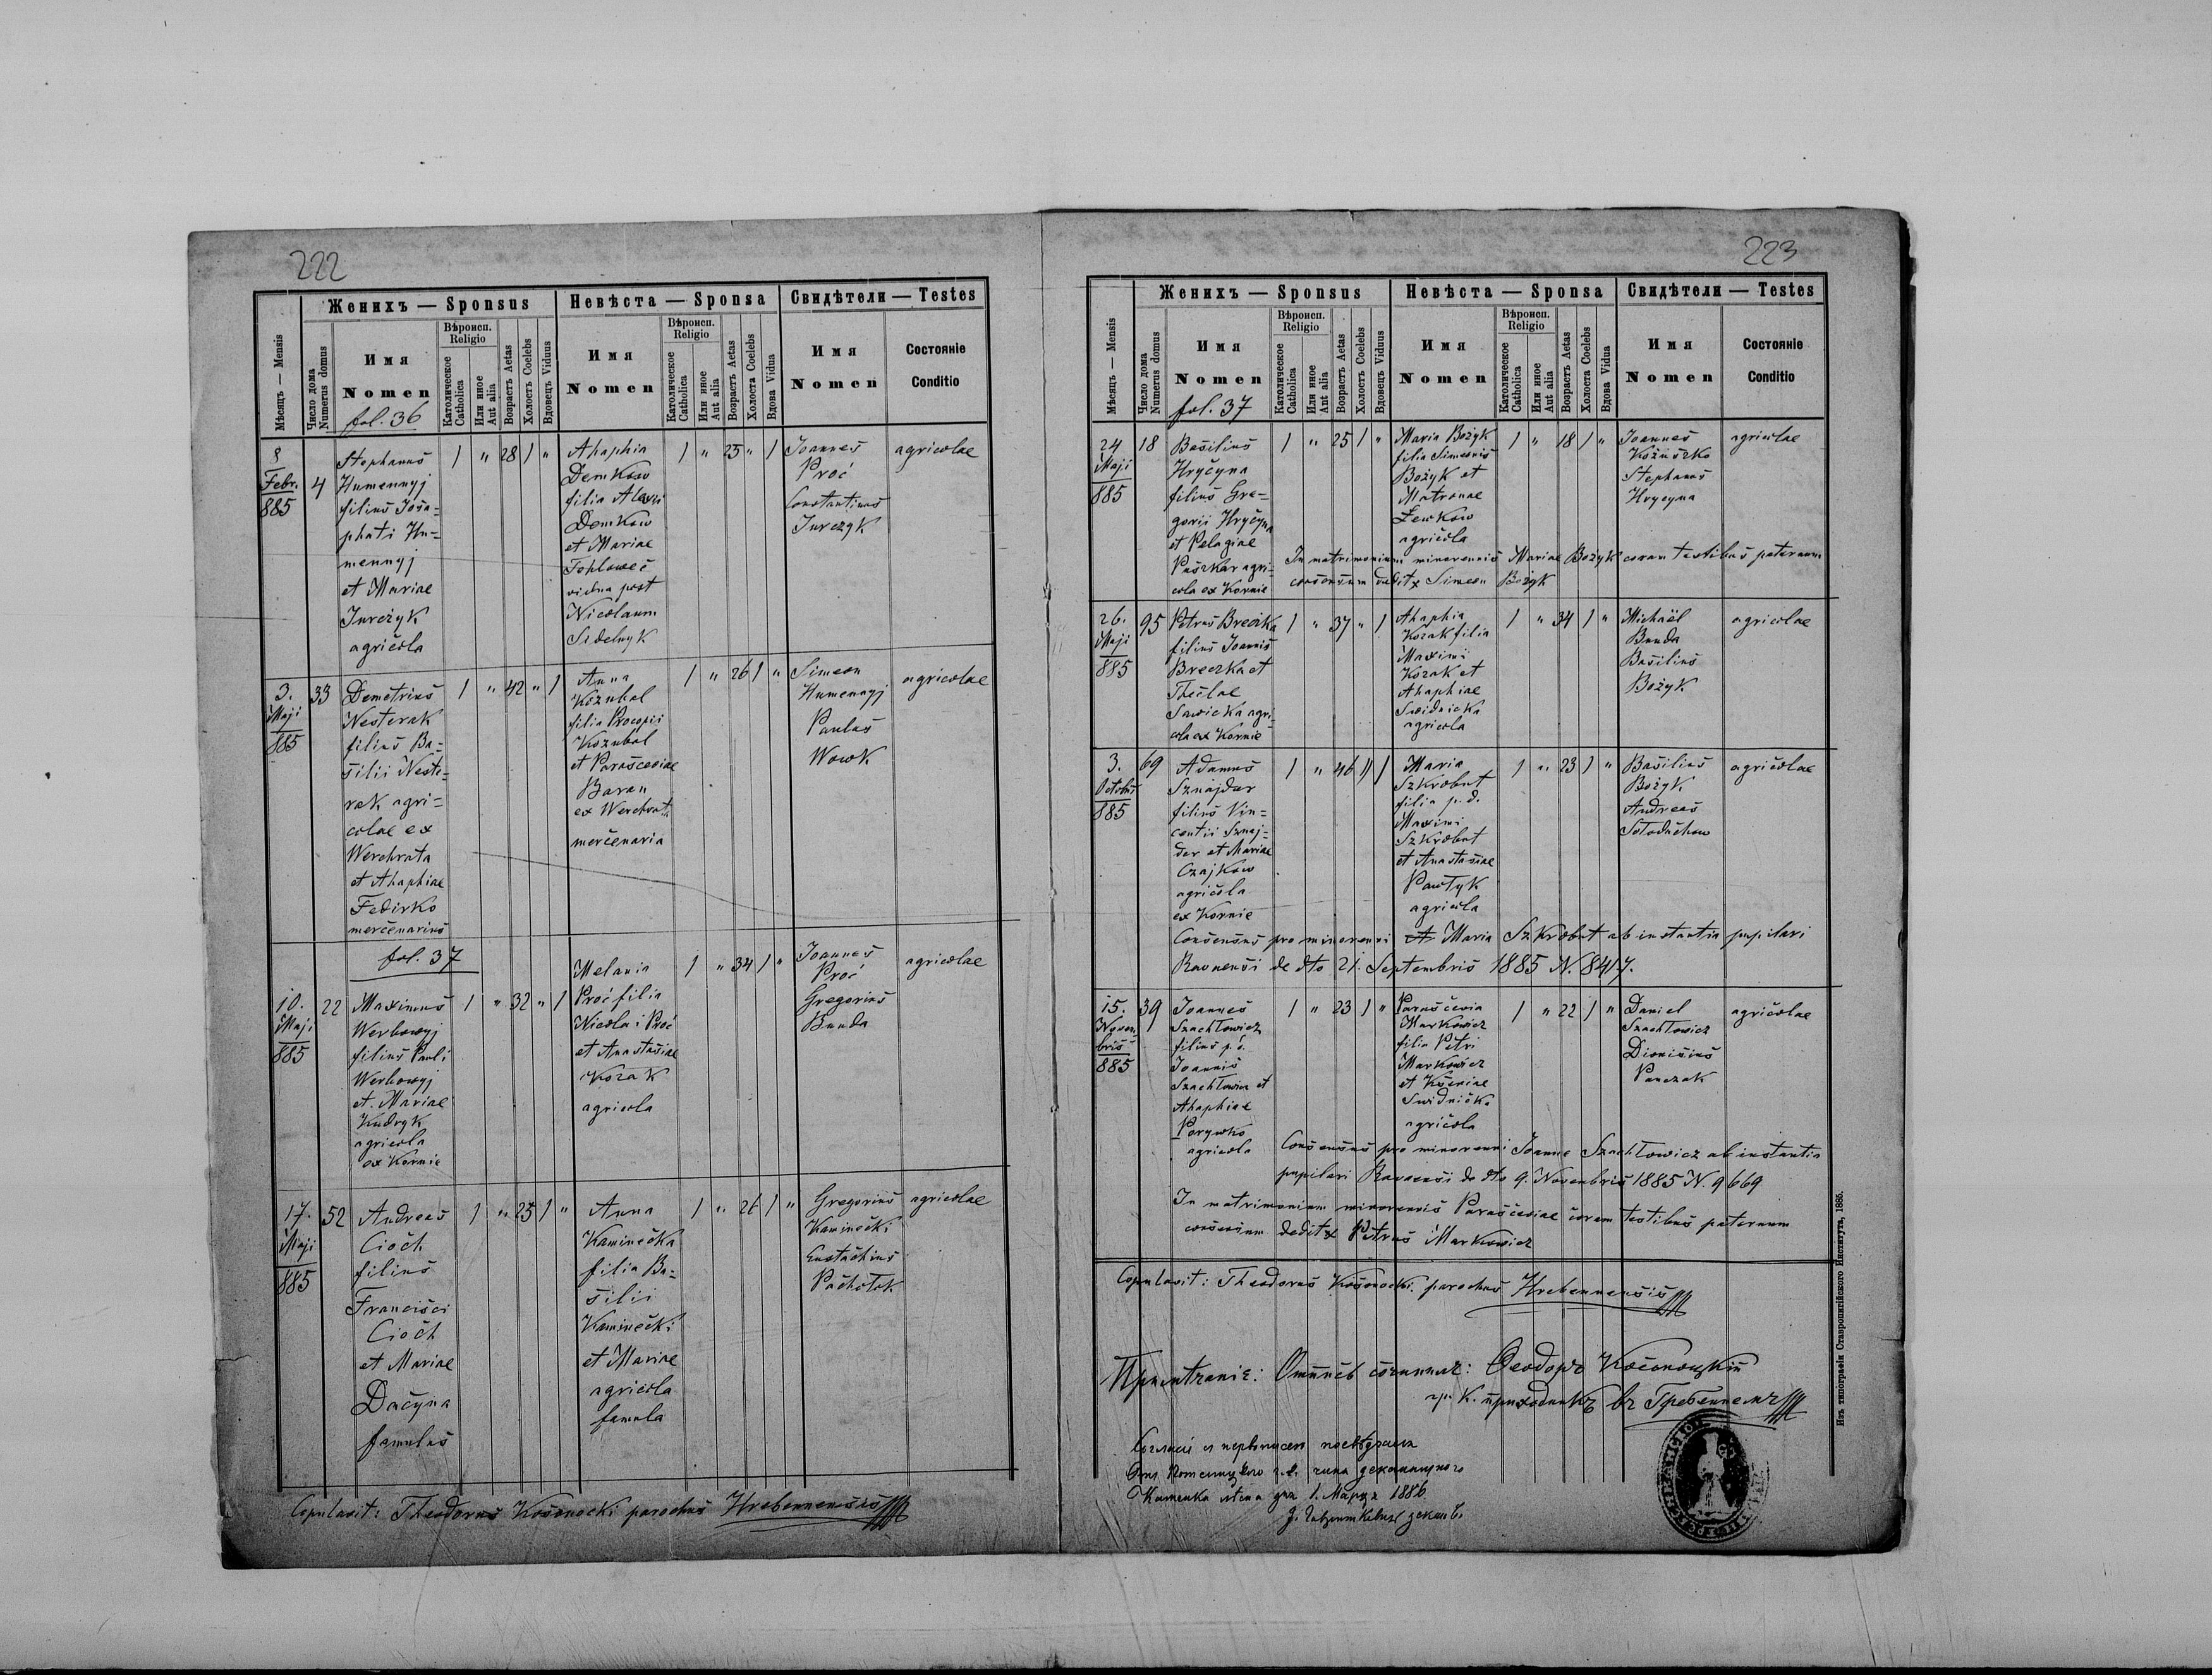 222
Женихъ — Sponsus
Невѣста — Sponsa
Свидѣтели — Testes
Мѣсяцъ — Mensis
Число дома
Numerus domus
Имя
Nomen
fol. 36
Вѣроисп.
Religio
Католическое
Catholica
Или иное
Aut alia
Возрасть Aetas
Холостъ Coelebs
Вдовецъ Viduus
Имя
Nomen
Вѣроисп.
Religio
Католическое
Catholica
Или иное
Aut alia
Возрасть Aetas
Холоста Coelebs
Вдова Vidua
Имя
Nomen
Состояніе
Conditio
8
Febr.
885
4
Stephanus
Humennyj
filius Josa-
phati Hu-
mennyj
et Mariae
Jurczyk
agricola
1 " 28 1 "
Ahaphia
Demkow
filia Alexii
Demkow
et Mariae
vidua post
Nicolaum
Sidelnyk
1 " 25 " 1
Joannes
Proć
Constantinus
Jurczyk
agricolae
3.
Maji
885
33
Demetrius
Nesterak
filius Ba-
silii Neste-
rak agri-
colae ex
Werchrata
et Ahaphiae
Fedirko
mercenarius
1 " 42 " 1
Anna
Kozubal
filia Procopii
Kozubal
et Parasceviae
Baran
ex Werchrata
mercenaria
1 " 26 1 "
Simeon
Humennyj
Paulus
Wowk
agricolae
fol. 37
10.
Maji
885
22
Maximus
Werbowyj
filius Pauli
Werbowyj
et Mariae
Kudryk
agricola
ex Kornie
1 " 32 " 1
Melania
Proć filia
Nicolai Proć
et Anastasiae
Kozak
agricola
1 " 34 1 "
Joannes
Proć
Gregorius
Bunda
agricolae
17.
Maji
885
52
Andreas
Cioch
filius
Francisci
Cioch
et Mariae
Dacyna
famulus
1 " 25 1 "
Anna
Kaminecka
filia Ba-
silii
Kaminecki
et Mariae
agricola
famula
1 " 26 1 "
Gregorius
Kaminecki
Eustachius
Pachołok
agricolae
Copulavit: Theodorus Kosonocki parochus Hrebennensis
223
Женихъ — Sponsus
Невѣста — Sponsa
Свидѣтели — Testes
Мѣсяцъ — Mensis
Число дома
Numerus domus
Имя
Nomen
fol. 37
Вѣроисп.
Religio
Католическое
Catholica
Или иное
Aut alia
Возрасть Aetas
Холостъ Coelebs
Вдовецъ Viduus
Имя
Nomen
Вѣроисп.
Religio
Католическое
Catholica
Или иное
Aut alia
Возрасть Aetas
Холоста Coelebs
Вдова Vidua
Имя
Nomen
Состояніе
Conditio
24
Maji
885
18
Basilius
Hrycyna
filius Gre-
gorii Hrycyna
et Pelagiae
Puszkar agri-
cola ex Kornie
1 " 25 1 "
Maria Bożyk
filia Simeonis
Bożyk et
Matronae
Lewkow
agricola
1 " 18 1 "
Joannes
Kożuszko
Stephanus
Hrycyna
agricolae
In matrimonium minorennis Mariae Bożyk coram testibus paternum
consensum dedit x Simeon Bożyk
26.
Maji
885
95
Petrus Breczka
filius Joannis
Breczka et
Theclae
Sawicka agri-
cola ex Kornie
1 " 37 " 1
Ahaphia
Kozak filia
Maximi
Kozak et
Ahaphiae
Swidnicka
agricola
1 " 34 1 "
Michaël
Bunda
Basilius
Bożyk
agricolae
3.
Octobris
885
69
Adamus
Sznajder
filius Vin-
centii Sznaj-
der et Mariae
Czajkow
agricola
ex Kornie
1 " 46 1
Maria
Szkrobut
filia p. d.
Maximi
Szkrobut
et Anastasiae
Pawłyk
agricola
1 " 23 1 "
Basilius
Bożyk
Andreas
Sołoduchow
agricolae
Consensus pro minorenni Maria Szkrobut ab instantia pupilari
Ravnensi de dto 21. Septembris 1885 N. 8417.
15.
Novem
bris
885
39
Joannes
Szachłowicz
filius p. d.
Joannis
Szachłowicz et
Ahaphiae
Porywko
agricola
1 " 23 1 "
Parascevia
Markowicz
filia Petri
Markowicz
et Kseniae
Swidnicka
agricola
1 " 22 1 "
Daniel
Szachłowicz
Dionisius
Panczak
agricolae
Consensus pro minorenni Joanne Szachłowicz ab instantia
pupilari Ravaensi de dto 9. Novembris 1885 N. 9669
In matrimonium minorennis Parasceviae coram testibus paternum
consensum dedit x Petrus Markowicz
Copulavit: Theodorus Kosonocki parochus Hrebennensis
Ѳеодоръ Косоноцкій
гр. к. приходникъ въ Гребенне
1. Марта 1886
Изъ типографіи Ставропигійского Института, 1885.